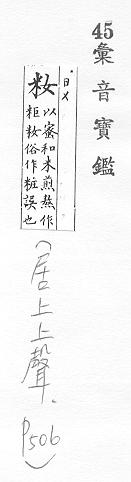 45 彙音寶鑑
籹 以蜜和米煎熬作
粔籹俗作粧誤也
(居上上聲.
P506)